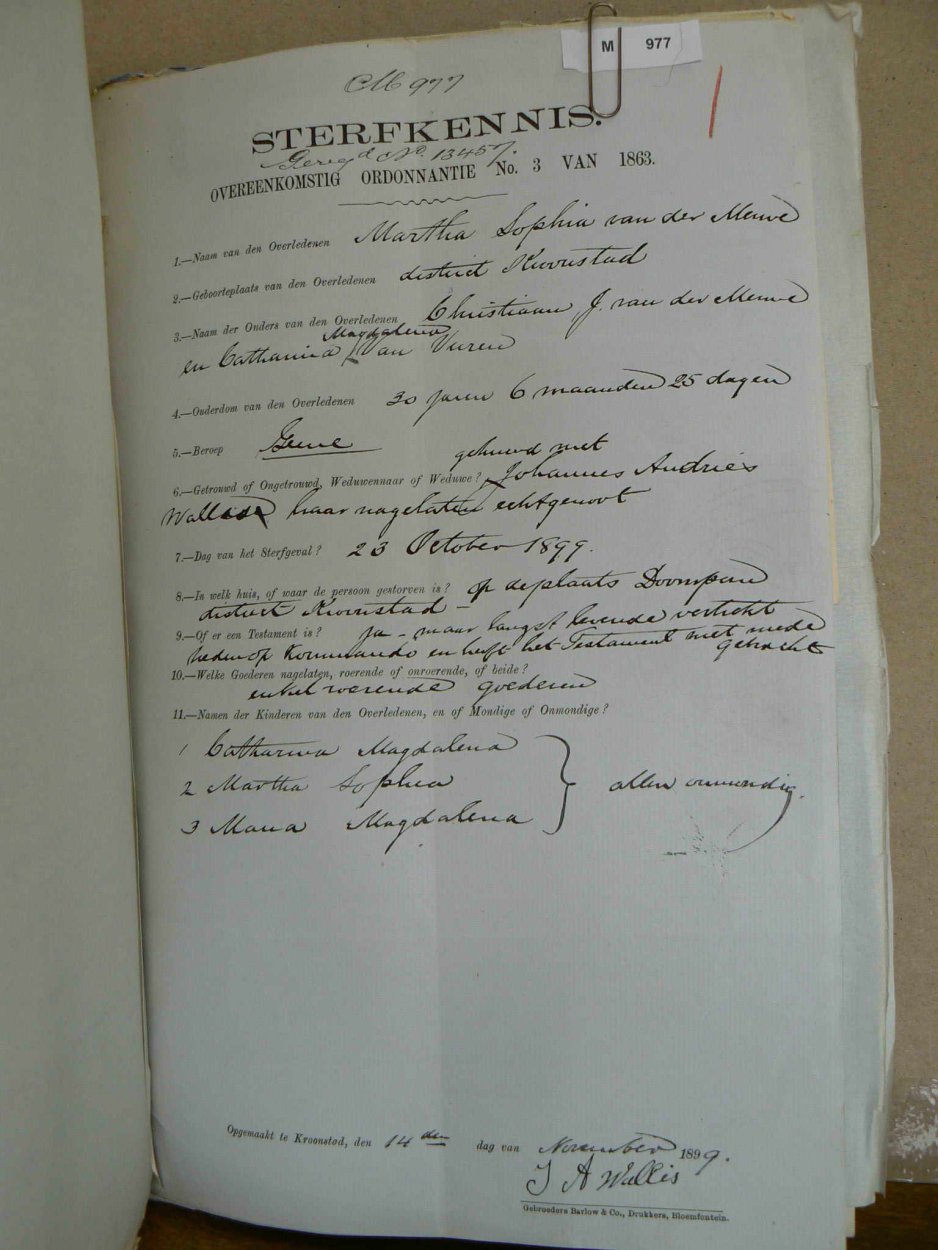 M 977
M 977
STERFKENNIS.
Geregd No. 13457.
OVEREENKOMSTIG ORDONNANTIE No. 3 VAN 1863.
1.—Naam van den Overledenen Martha Sophia van der Merwe
2.—Geboorteplaats van den Overledenen district Kroonstad
3.—Naam der Ouders van den Overledenen Christiaan J. van der Merwe
en Catharina Magdalena Van Vuren
4.—Ouderdom van den Overledenen 30 jaren 6 maanden 25 dagen
5.—Beroep Geene
gehuwd met
6.—Getrouwd of Ongetrouwd, Weduwennaar of Weduwe? Johannes Andries
Wallis haar nagelaten echtgenoot
7.—Dag van het Sterfgeval? 23 October 1899.
8.—In welk huis, of waar de persoon gestorven is? op de plaats Doornpan
district Kroonstad
9.—Of er een Testament is? ja - maar langst levende vertrekt
heden op Kommando en heeft het Testament met mede
gebracht
10.—Welke Goederen nagelaten, roerende of onroerende, of beide?
enkel roerende goederen
11.—Namen der Kinderen van den Overledenen, en of Mondige of Onmondige?
1 Catharina Magdalena
2 Martha Sophia
3 Maria Magdalena
allen onmondig.
Opgemaakt te Kroonstad, den 14den dag van November 1899.
J A Wallis
Gebroeders Barlow & Co., Drukkers, Bloemfontein.